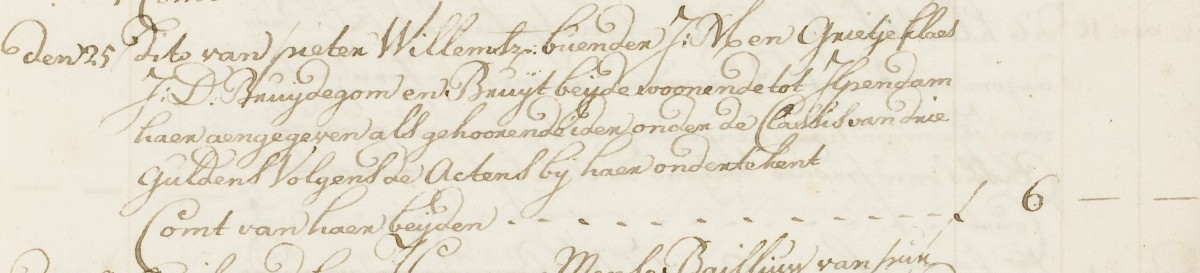 den 25 dito van pieter Willemsz: buender J: M en Grietje klaes
J: D: Bruydegom en Bruyt beyde woonende tot Ilpendam
haer aengegeven als gehoorende ider onder de Classis van drie
Guldens Volgens de Actens bij haer ondertekent
Comt van haer beyden - - - - - - - - - - - - - ƒ 6 — —
Bailliuw van pur